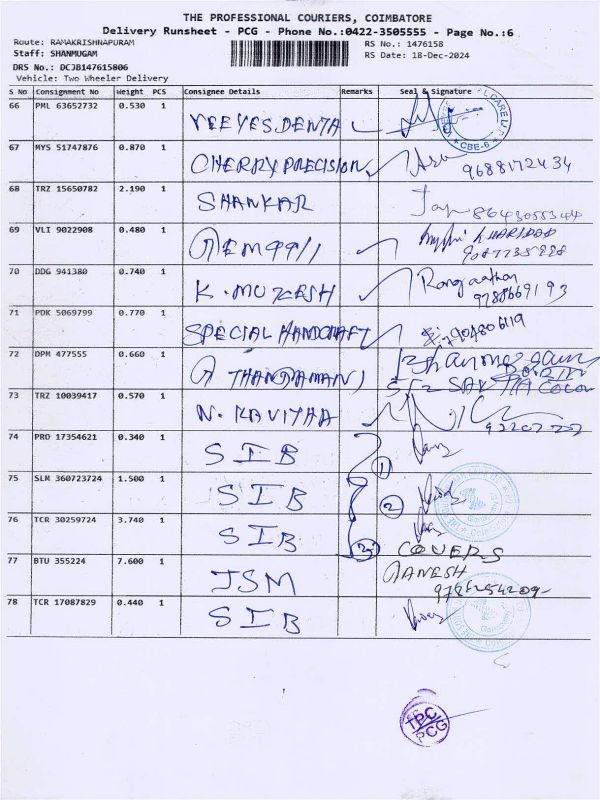 THE PROFESSIONAL COURIERS, COIMBATORE
Delivery Runsheet - PCG - Phone No.:0422-3505555 - Page No.:6
Route: RAMAKRISHNAPURAM
RS No.: 1476158
Staff: SHANMUGAM
RS Date: 18-Dec-2024
DRS No.: DCJB147615806
Vehicle: Two Wheeler Delivery
S No Consignment No Weight PCS Consignee Details Remarks Seal & Signature
66 PML 63652732 0.530 1 VEEYES DENTA
CBE-6
67 MYS 51747876 0.870 1 CHERRY PRECISION
9688172434
68 TRZ 15650782 2.190 1 SHANKAR
69 VLI 9022908 0.480 1
70 DDG 941380 0.740 1 K. MUKESH
71 PDK 5069799 0.770 1 SPECIAL HANDCRAFT
7904806119
72 DPM 477555 0.660 1 THANGAMANI
73 TRZ 10039417 0.570 1 N. KAVITHA
74 PRO 17354621 0.340 1 SIB
1
75 SLM 360723724 1.500 1 SIB
2
76 TCR 30259724 3.740 1 SIB
3 COVERS
77 BTU 355224 7.600 1 JSM GANESH
78 TCR 17087829 0.440 1 SIB
TPC/
PCG